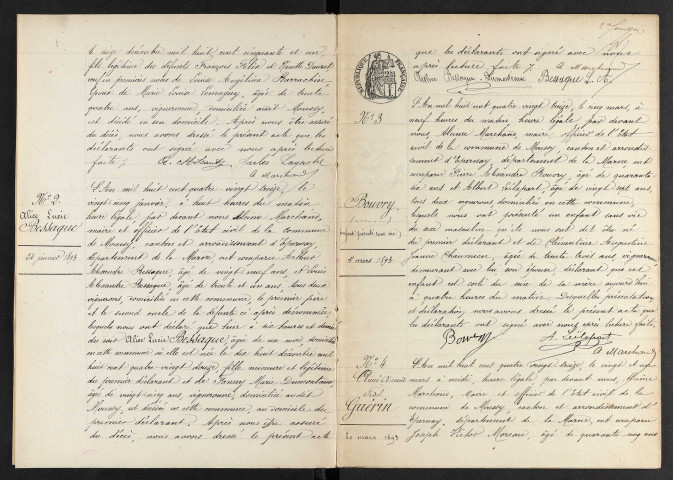 le six décembre mil huit cent cinquante et un
fils légitime des défunts François Félix et
veuf en premières noces de Louise Angélina
époux de Marie Louise Lemagny, âgée de trente
quatre ans, vigneronne, domiciliée audit Moussy,
est décédé en son domicile. Après nous être assuré
du décès, nous avons dressé le présent acte que les
déclarants ont signé avec nous après lecture
faite.
A Marchand
N° 2
Alice Lucie
Bessaque
24 janvier 1893
L'An mil huit cent quatre vingt treize, le
vingt cinq janvier, à huit heures du matin
heure légale, par devant nous Alcime Marchand,
maire et officier de l'Etat civil de la commune
de Moussy, canton et arrondissement d'Epernay,
département de la Marne, ont comparu Arthur
Alexandre Bessaque, âgé de vingt neuf ans, et Louis
Alexandre Bessaque, âgé de trente et un ans, tous deux
vignerons, domiciliés en cette commune, le premier père
et le second oncle de la défunte ci après dénommée,
lesquels nous ont déclaré que hier à six heures et demie
du soir Alice Lucie Bessaque, âgée de un mois, domiciliée
en cette commune où elle est née le dix huit décembre mil
huit cent quatre vingt douze, fille mineure et légitime
du premier déclarant et de Fanny Marie
âgée de vingt cinq ans, vigneronne, domiciliée audit
Moussy, est décédée en cette commune, au domicile du
premier déclarant. Après nous être assuré
du décès, nous avons dressé le présent acte
que les déclarants ont signé avec nous
après lecture faite. A Marchand
Bessaque Bessaque L. A.
REPUBLIQUE FRANCAISE
N° 3
Bouvry
enfant présenté sans vie
11 mars 1893
L'An mil huit cent quatre vingt treize, le onze mars, à
neuf heures du matin, heure légale, par devant
nous, Alcime Marchand, maire, officier de l'Etat
civil de la commune de Moussy, canton et arrondis-
sement d'Epernay, département de la Marne ont
comparu Pierre Alexandre Bouvry, âgé de quarante
six ans et Albert Leclapart, âgé de vingt sept ans,
tous deux vignerons domiciliés en cette commune,
lesquels nous ont présenté un enfant sans vie
du sexe masculin qu'ils nous ont dit être né
du premier déclarant et de Clémentine Augustine
Jeanne Chaumeur, âgée de trente trois ans, vigneronne
demeurant avec lui son épouse, déclarant que cet
enfant est sorti du sein de sa mère aujourd'hui
à quatre heures du matin. Desquelles présentation
et déclaration, nous avons dressé le présent acte que
les déclarants ont signé avec nous après lecture faite.
Bouvry A. Leclapart
A Marchand
N° 4
Guérin
20 mars 1893
L'An mil huit cent quatre vingt treize, le vingt et un
mars à midi, heure légale, par devant nous, Alcime
Marchand, Maire et officier de l'Etat civil de la
commune de Moussy, canton et arrondissement d'
Epernay, département de la Marne, ont comparu
Joseph Victor Moreau, âgé de quarante cinq ans